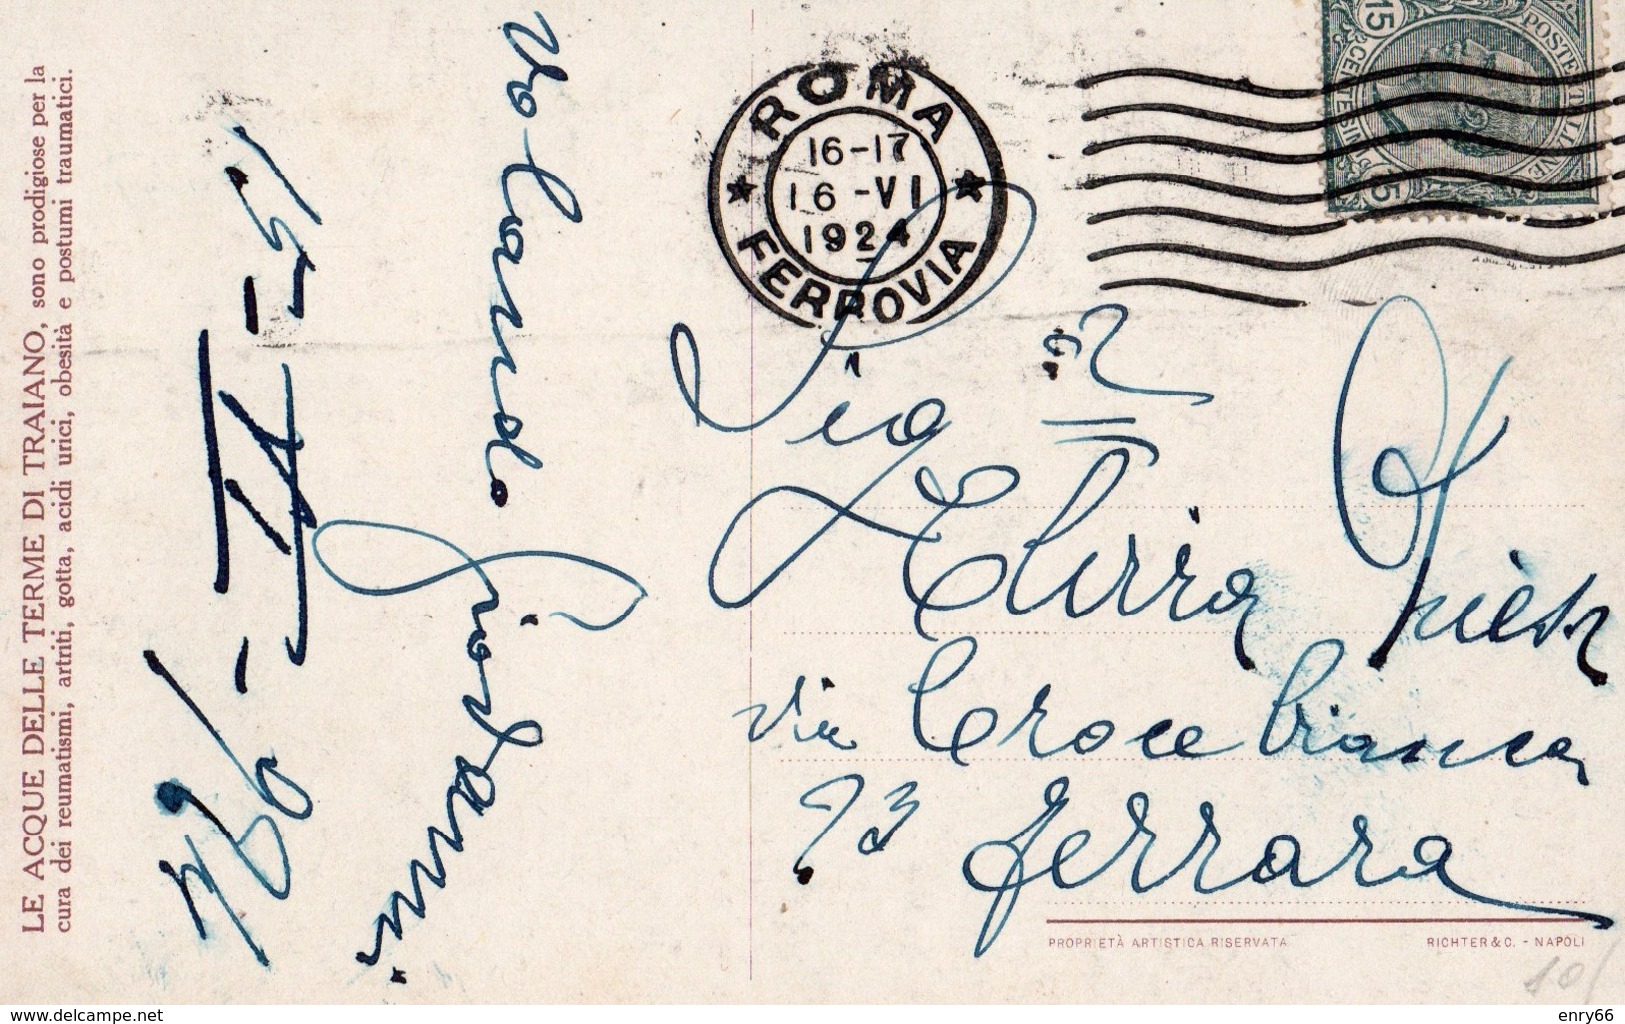 LE ACQUE DELLE TERME DI TRAIANO, sono prodigiose per la
cura dei reumatismi, artriti, gotta, acidi urici, obesità e postumi traumatici.
15-VI-924
Volando
Giovanni
ROMA
16-17
16-VI
1924
FERROVIA
15 CENTESIMI 15
POSTE ITALIANE
Sig
Elvira
via Croce bianca
93 Ferrara
PROPRIETÀ ARTISTICA RISERVATA
RICHTER & C. - NAPOLI
www.delcampe.net
enry66